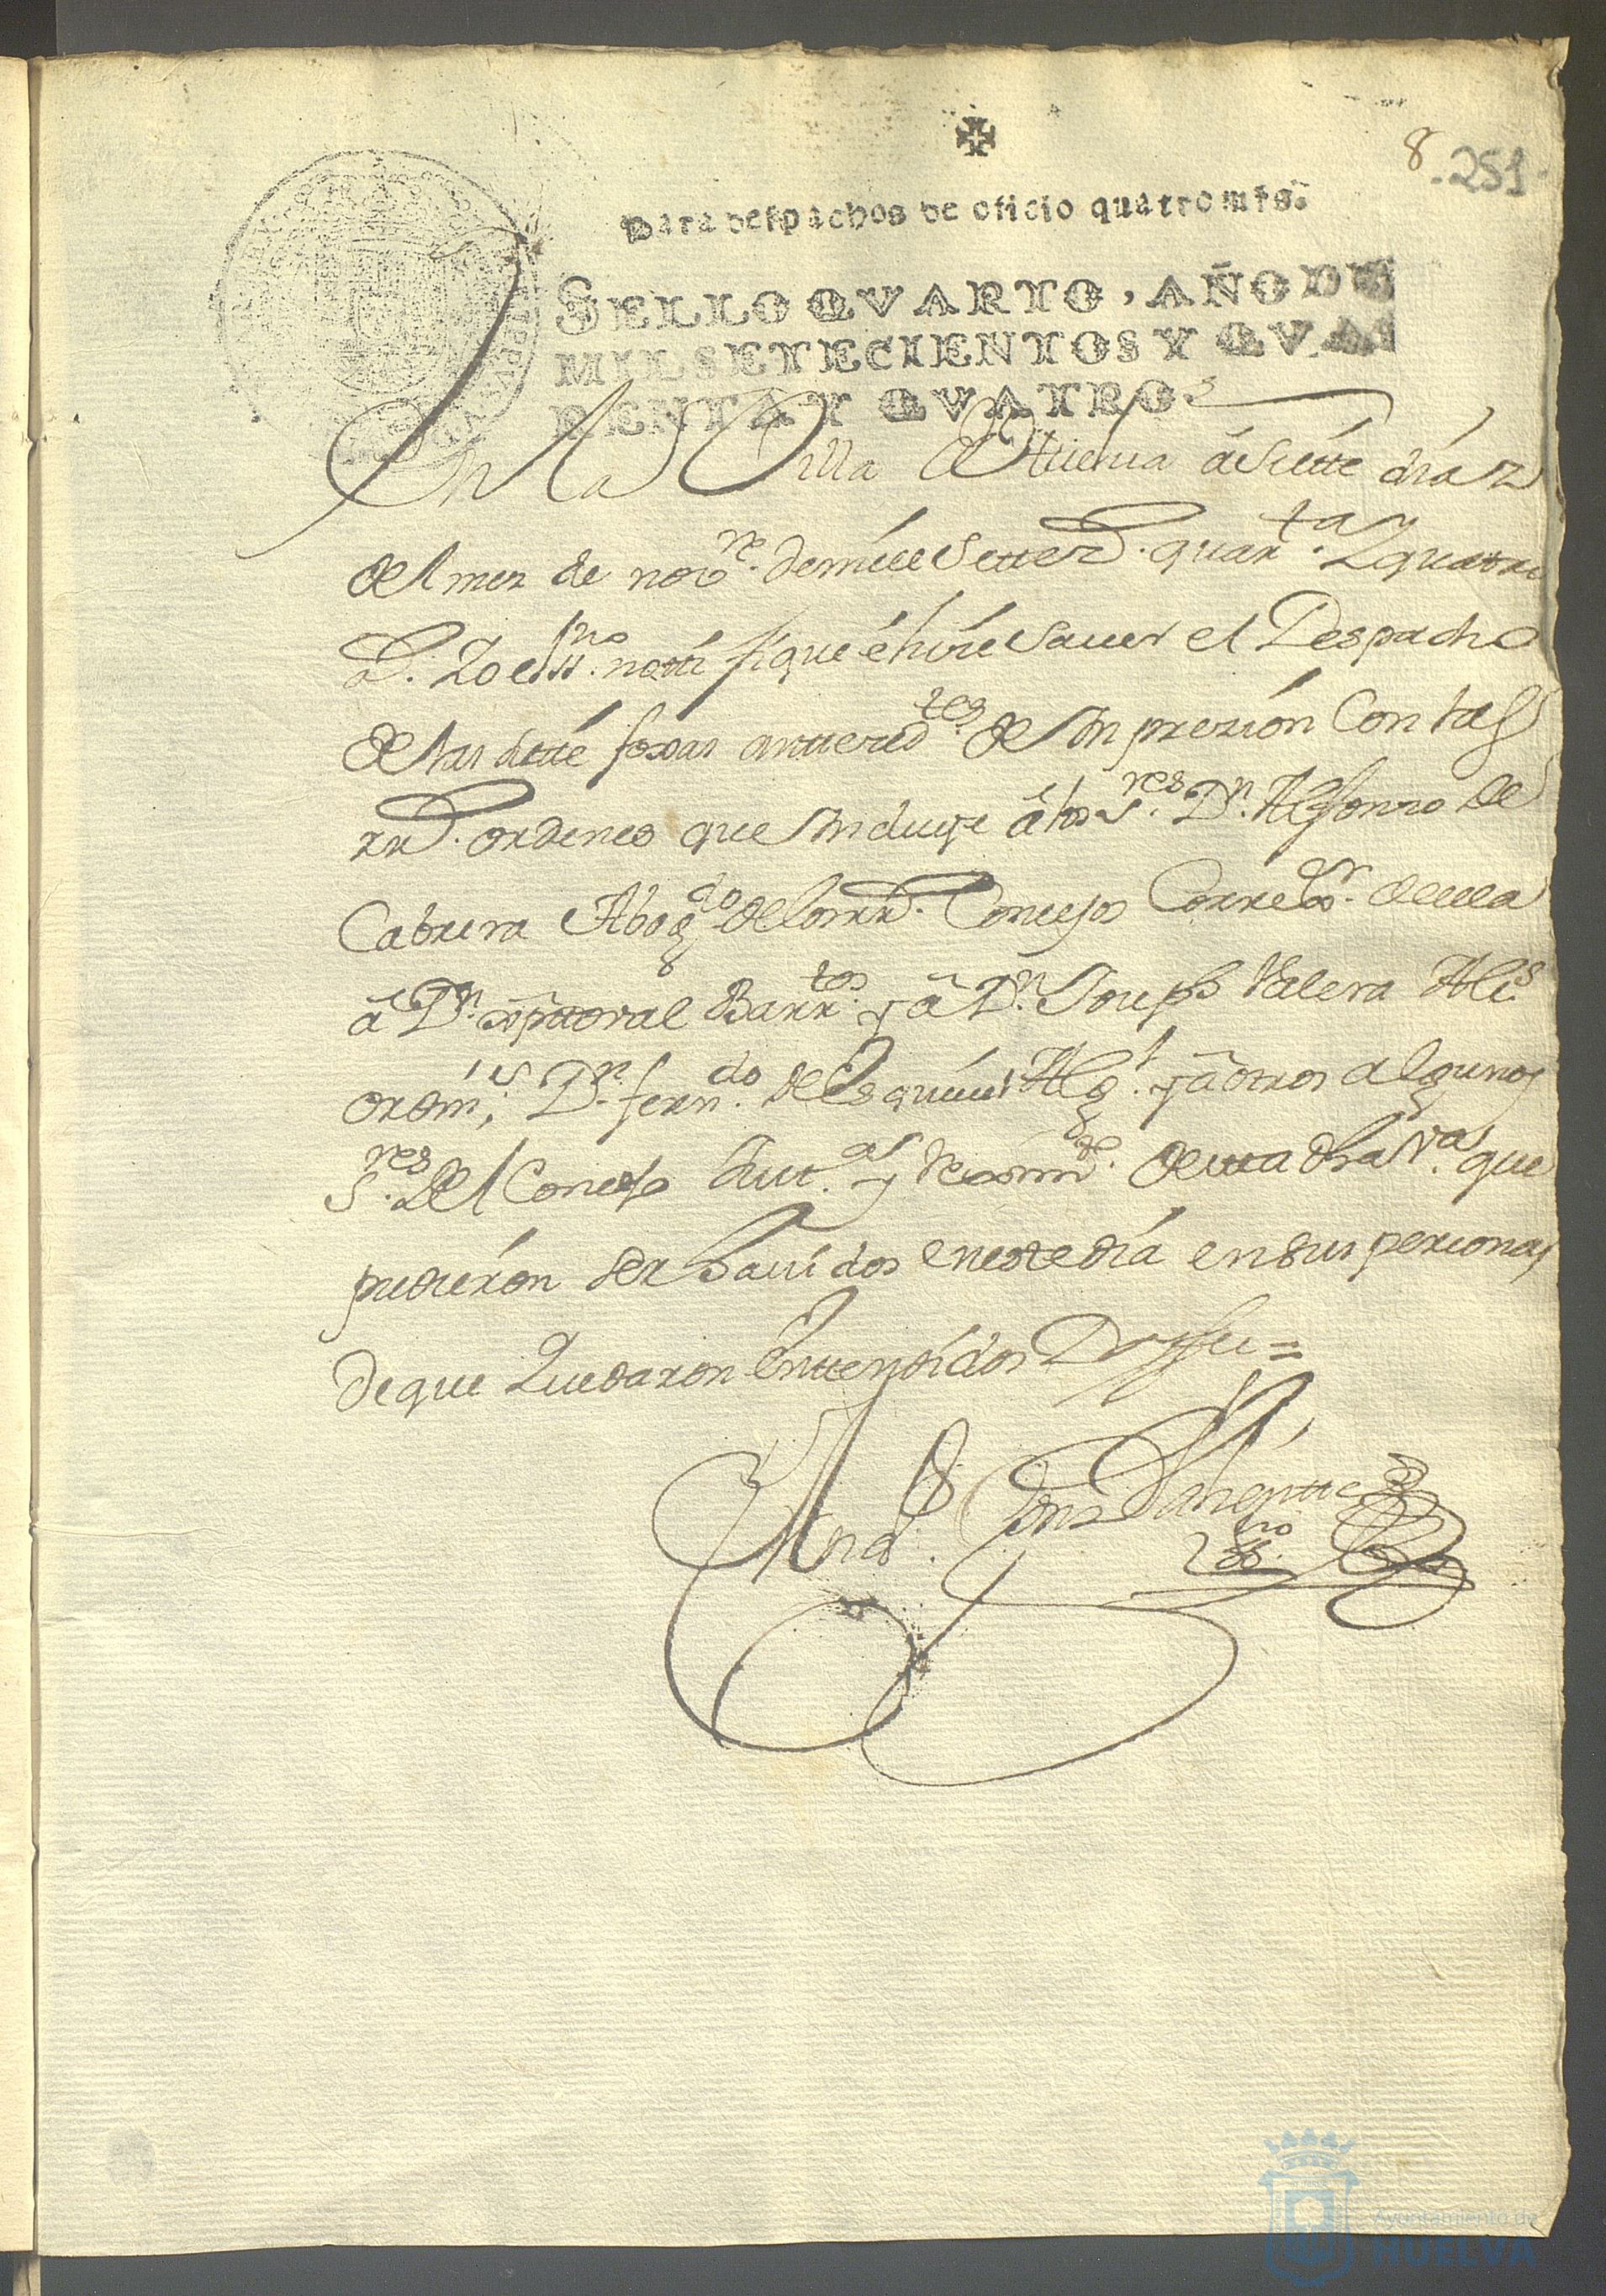 8
251
Para despachos de oficio quatro mrs.
SELLO QVARTO, AÑO DE
MIL SETECIENTOS Y QVA
RENTA Y QVATRO.
En la Villa de Huelva á siette días
del mes de nov.re de mill settez.s quar.ta y quatro
as. Yo el ess.no nottifiqué é hice saver el Despacho
de las foxas anttezed.tes de Impresión con las
rr.s ordenes que Incluye á los S.res D.n Alfonso de
Cabrera Abog.do de los rr.s Consejos Corre.or de ella
á D.n xptoval Barr.tos y á D.n Joseph Valera Al.s
ordin.s D.n fern.do de Esquivel Alg.l y á otros algunos
S.res del Consejo Just.a y Reximi.to de esta dha V.a que
pudieron ser havidos en este día en sus personas
de que Quedaron Enttendidos Doy ffee =
And.s Gonz Valientte
ess.no
Ayuntamiento de
HUELVA